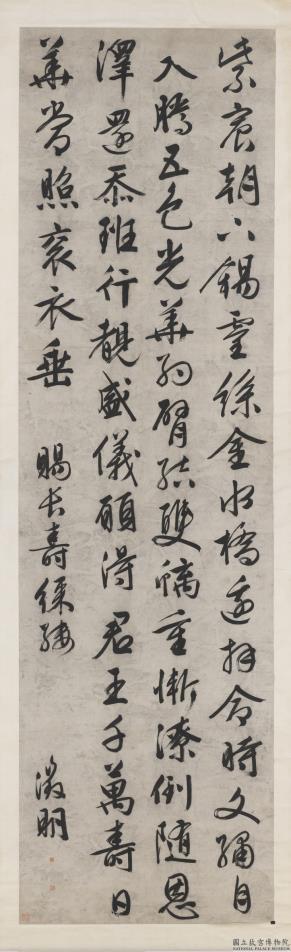 紫宸朝下錫靈絲金水橋邊拜命時文繡自
天騰五色光華約臂結雙螭重慚潦倒隨恩
澤還忝班行覩盛儀願得君王千萬壽日
華常照袞衣垂 賜長壽綵縷 徵明
國立故宮博物院
NATIONAL PALACE MUSEUM